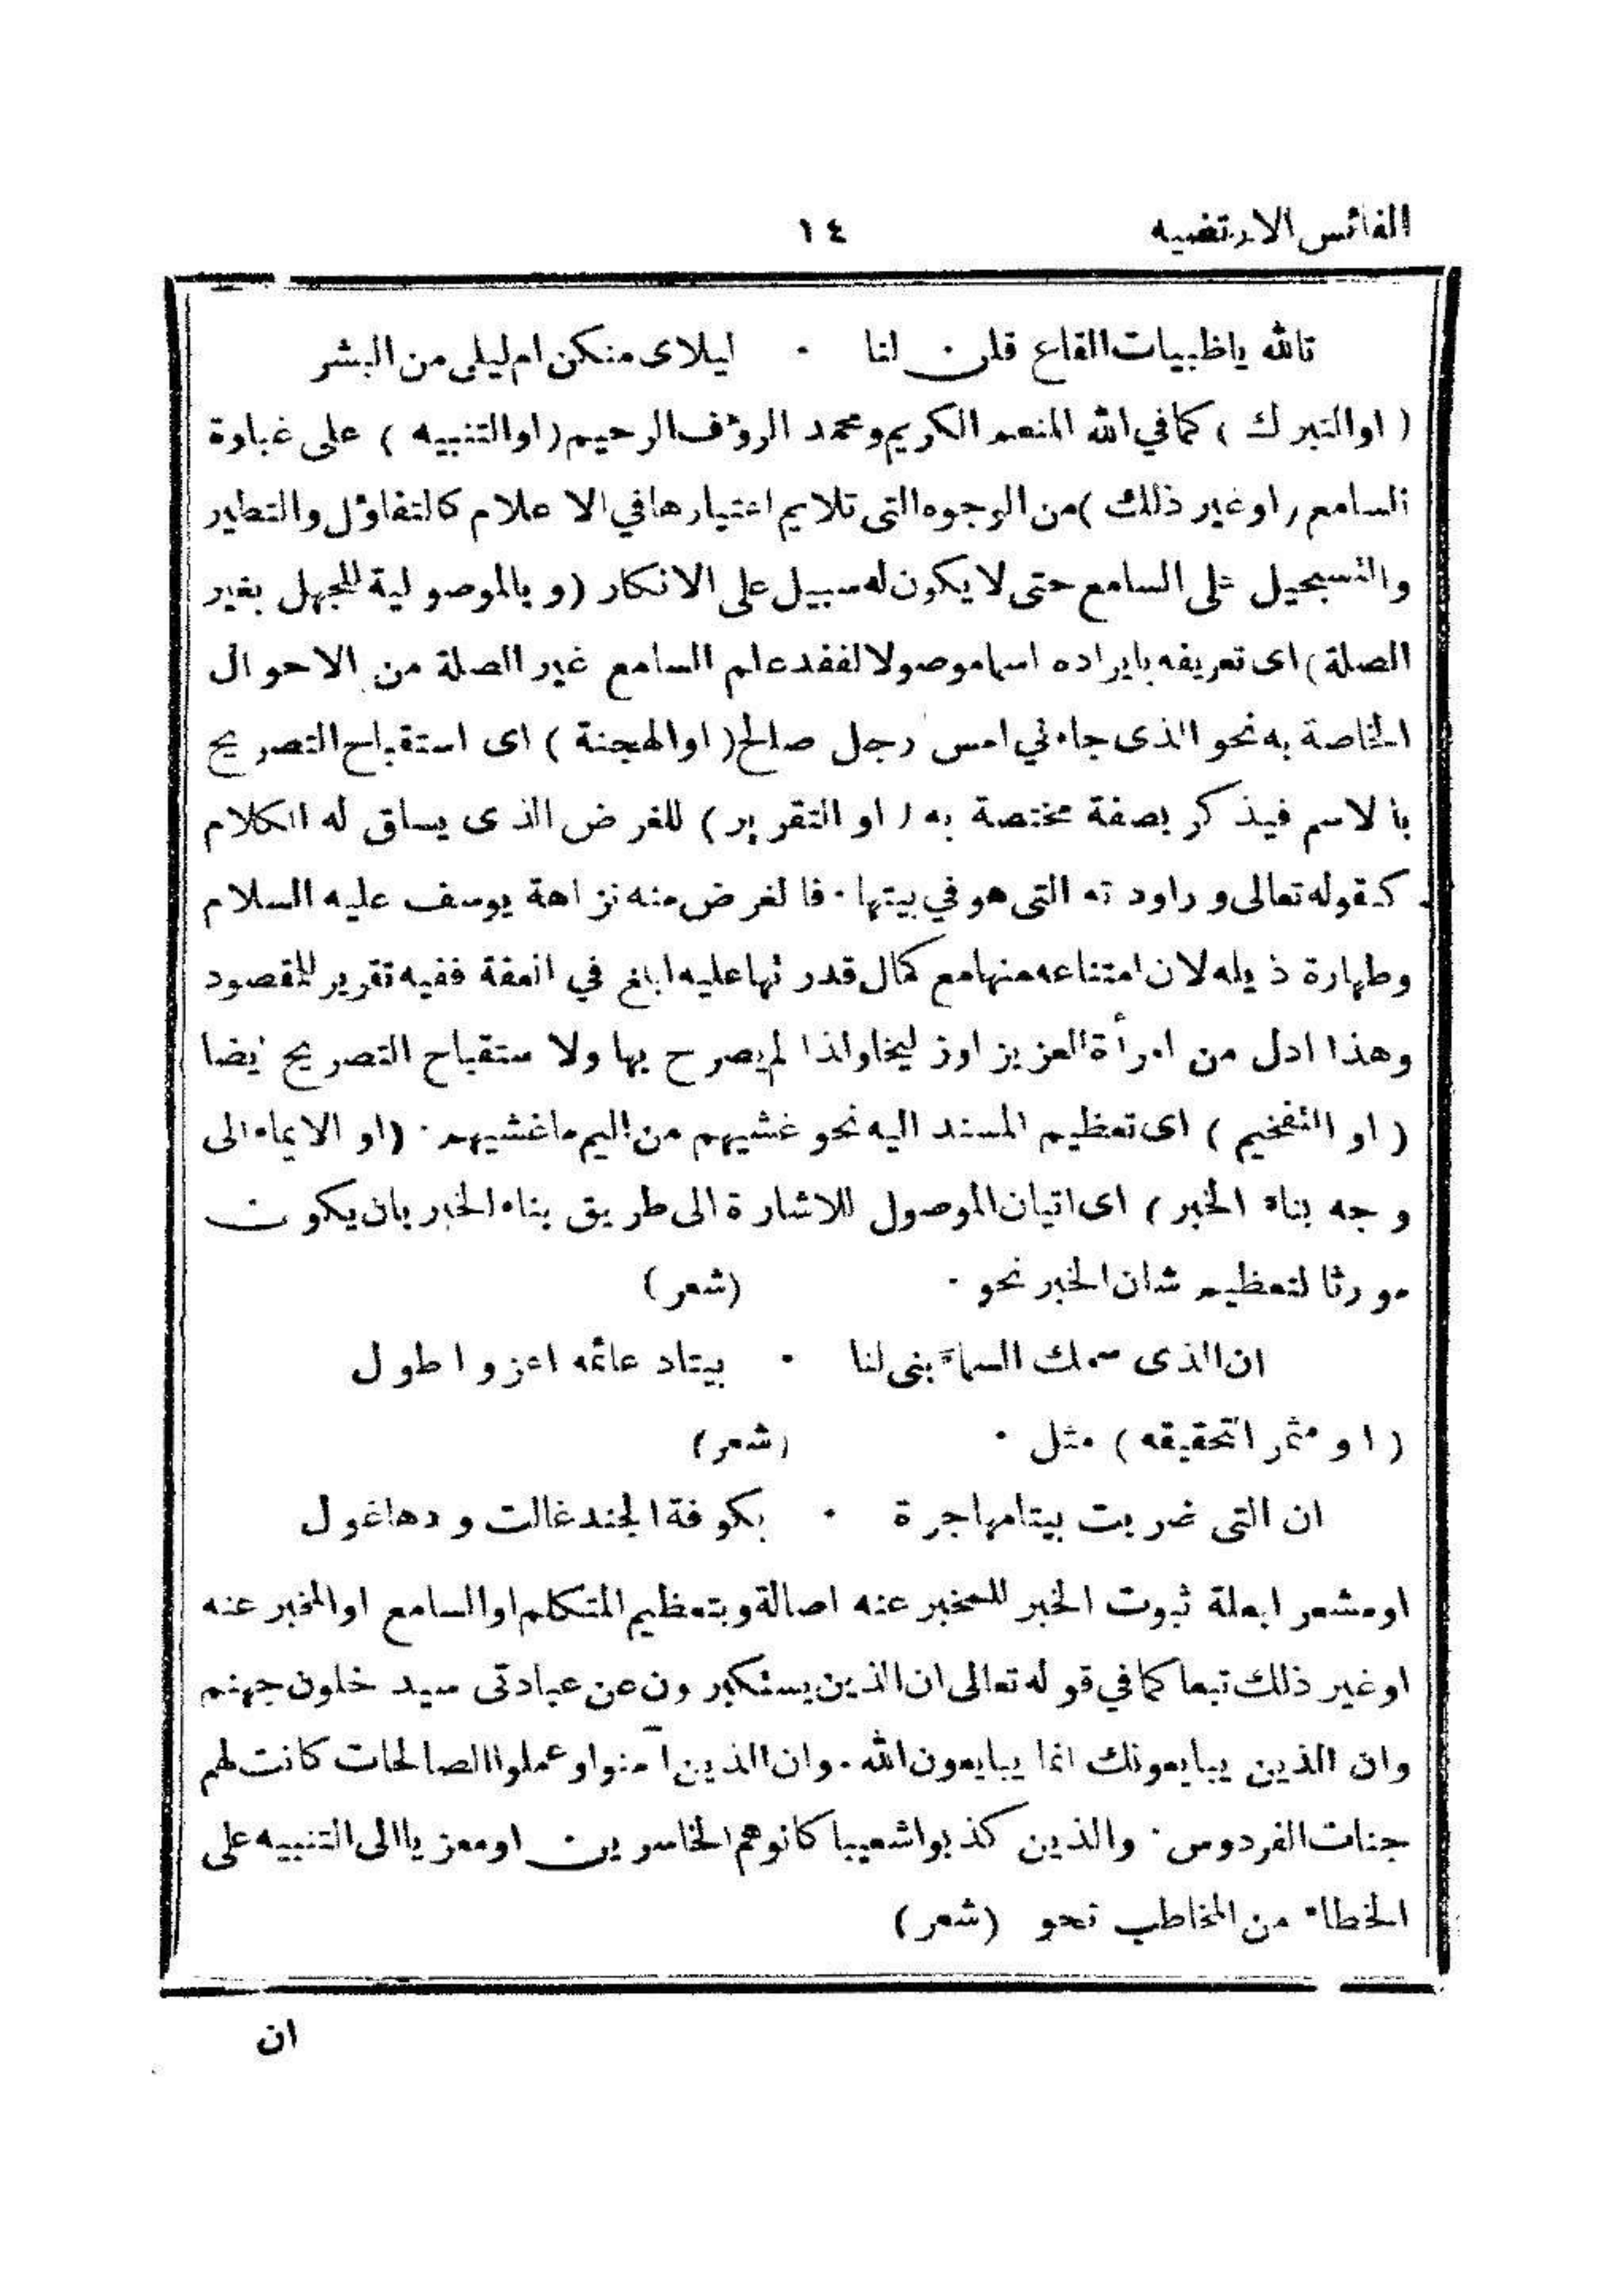 النفائس الارتضيه
١٤
تالله ياظبيات القاع قلن لنا ٠ ليلاى منكن ام ليلى من البشر
( اوالتبرك ) كما في الله المنعم الكريم ومحمد الرؤف الرحيم ( اوالتنبيه ) على غباوة
السامع ( اوغير ذلك ) من الوجوه التى تلايم اعتبارها في الاعلام كالتفاؤل والتطير
والتسجيل على السامع حتى لا يكون له سبيل على الانكار ( و بالموصولية للجهل بغير
الصلة ) اى تعريفه بايراده اسما موصولا لفقد علم السامع غير الصلة من الاحوال
الخاصة به نحو الذى جاءني امس رجل صالح ( اوالهجنة ) اى استقباح التصريح
بالاسم فيذكر بصفة مختصة به ( او التقرير ) للغرض الذى يساق له الكلام
كقوله تعالى و راودته التى هو في بيتها ٠ فالغرض منه نزاهة يوسف عليه السلام
وطهارة ذيله لان امتناعه منها مع كمال قدرتها عليه ابلغ في العفة ففيه تقرير للمقصود
وهذا ادل من امرأة العزيز اوزليخا ولذا لم يصرح بها ولاستقباح التصريح ايضا
( او التفخيم ) اى تعظيم المسند اليه نحو غشيهم من اليم ماغشيهم ٠ ( او الايماء الى
وجه بناء الخبر ) اى اتيان الموصول للاشارة الى طريق بناء الخبر بان يكون
مورثا لتعظيم شان الخبر نحو ٠ (شعر)
ان الذى سمك السماء بنى لنا ٠ بيتاد عائمه اعز و اطول
( او مثمرا تحقيقه ) مثل ٠ (شعر)
ان التى ضربت بيتا مهاجرة ٠ بكوفة الجند غالت ودها غول
اومشعرا بعلة ثبوت الخبر للمخبر عنه اصالة وبتعظيم المتكلم اوالسامع اوالمخبر عنه
اوغير ذلك تبعا كما في قوله تعالى ان الذين يستكبرون عن عبادتى سيدخلون جهنم
وان الذين يبايعونك انما يبايعون الله ٠ وان الذين آمنوا وعملوا الصالحات كانت لهم
جنات الفردوس ٠ والذين كذبوا شعيبا كانوهم الخاسرين ٠ اومعزيا الى التنبيه على
الخطاء من المخاطب نحو (شعر)
ان